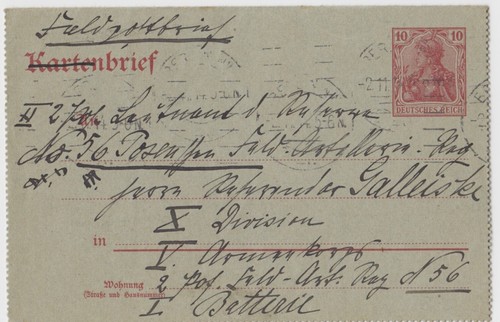 Feldpostbrief
Kartenbrief
10 10
DEUTSCHES REICH
2 Pos. Leutnant d. Reserve
No. 56 Posensches Feld-Artillerie-Reg
Herrn Referendar Galleiske
X Division
in V Armeekorps
Wohnung 2 Pos. Feld-Art. Reg No 56
(Straße und Hausnummer)
I Batterie